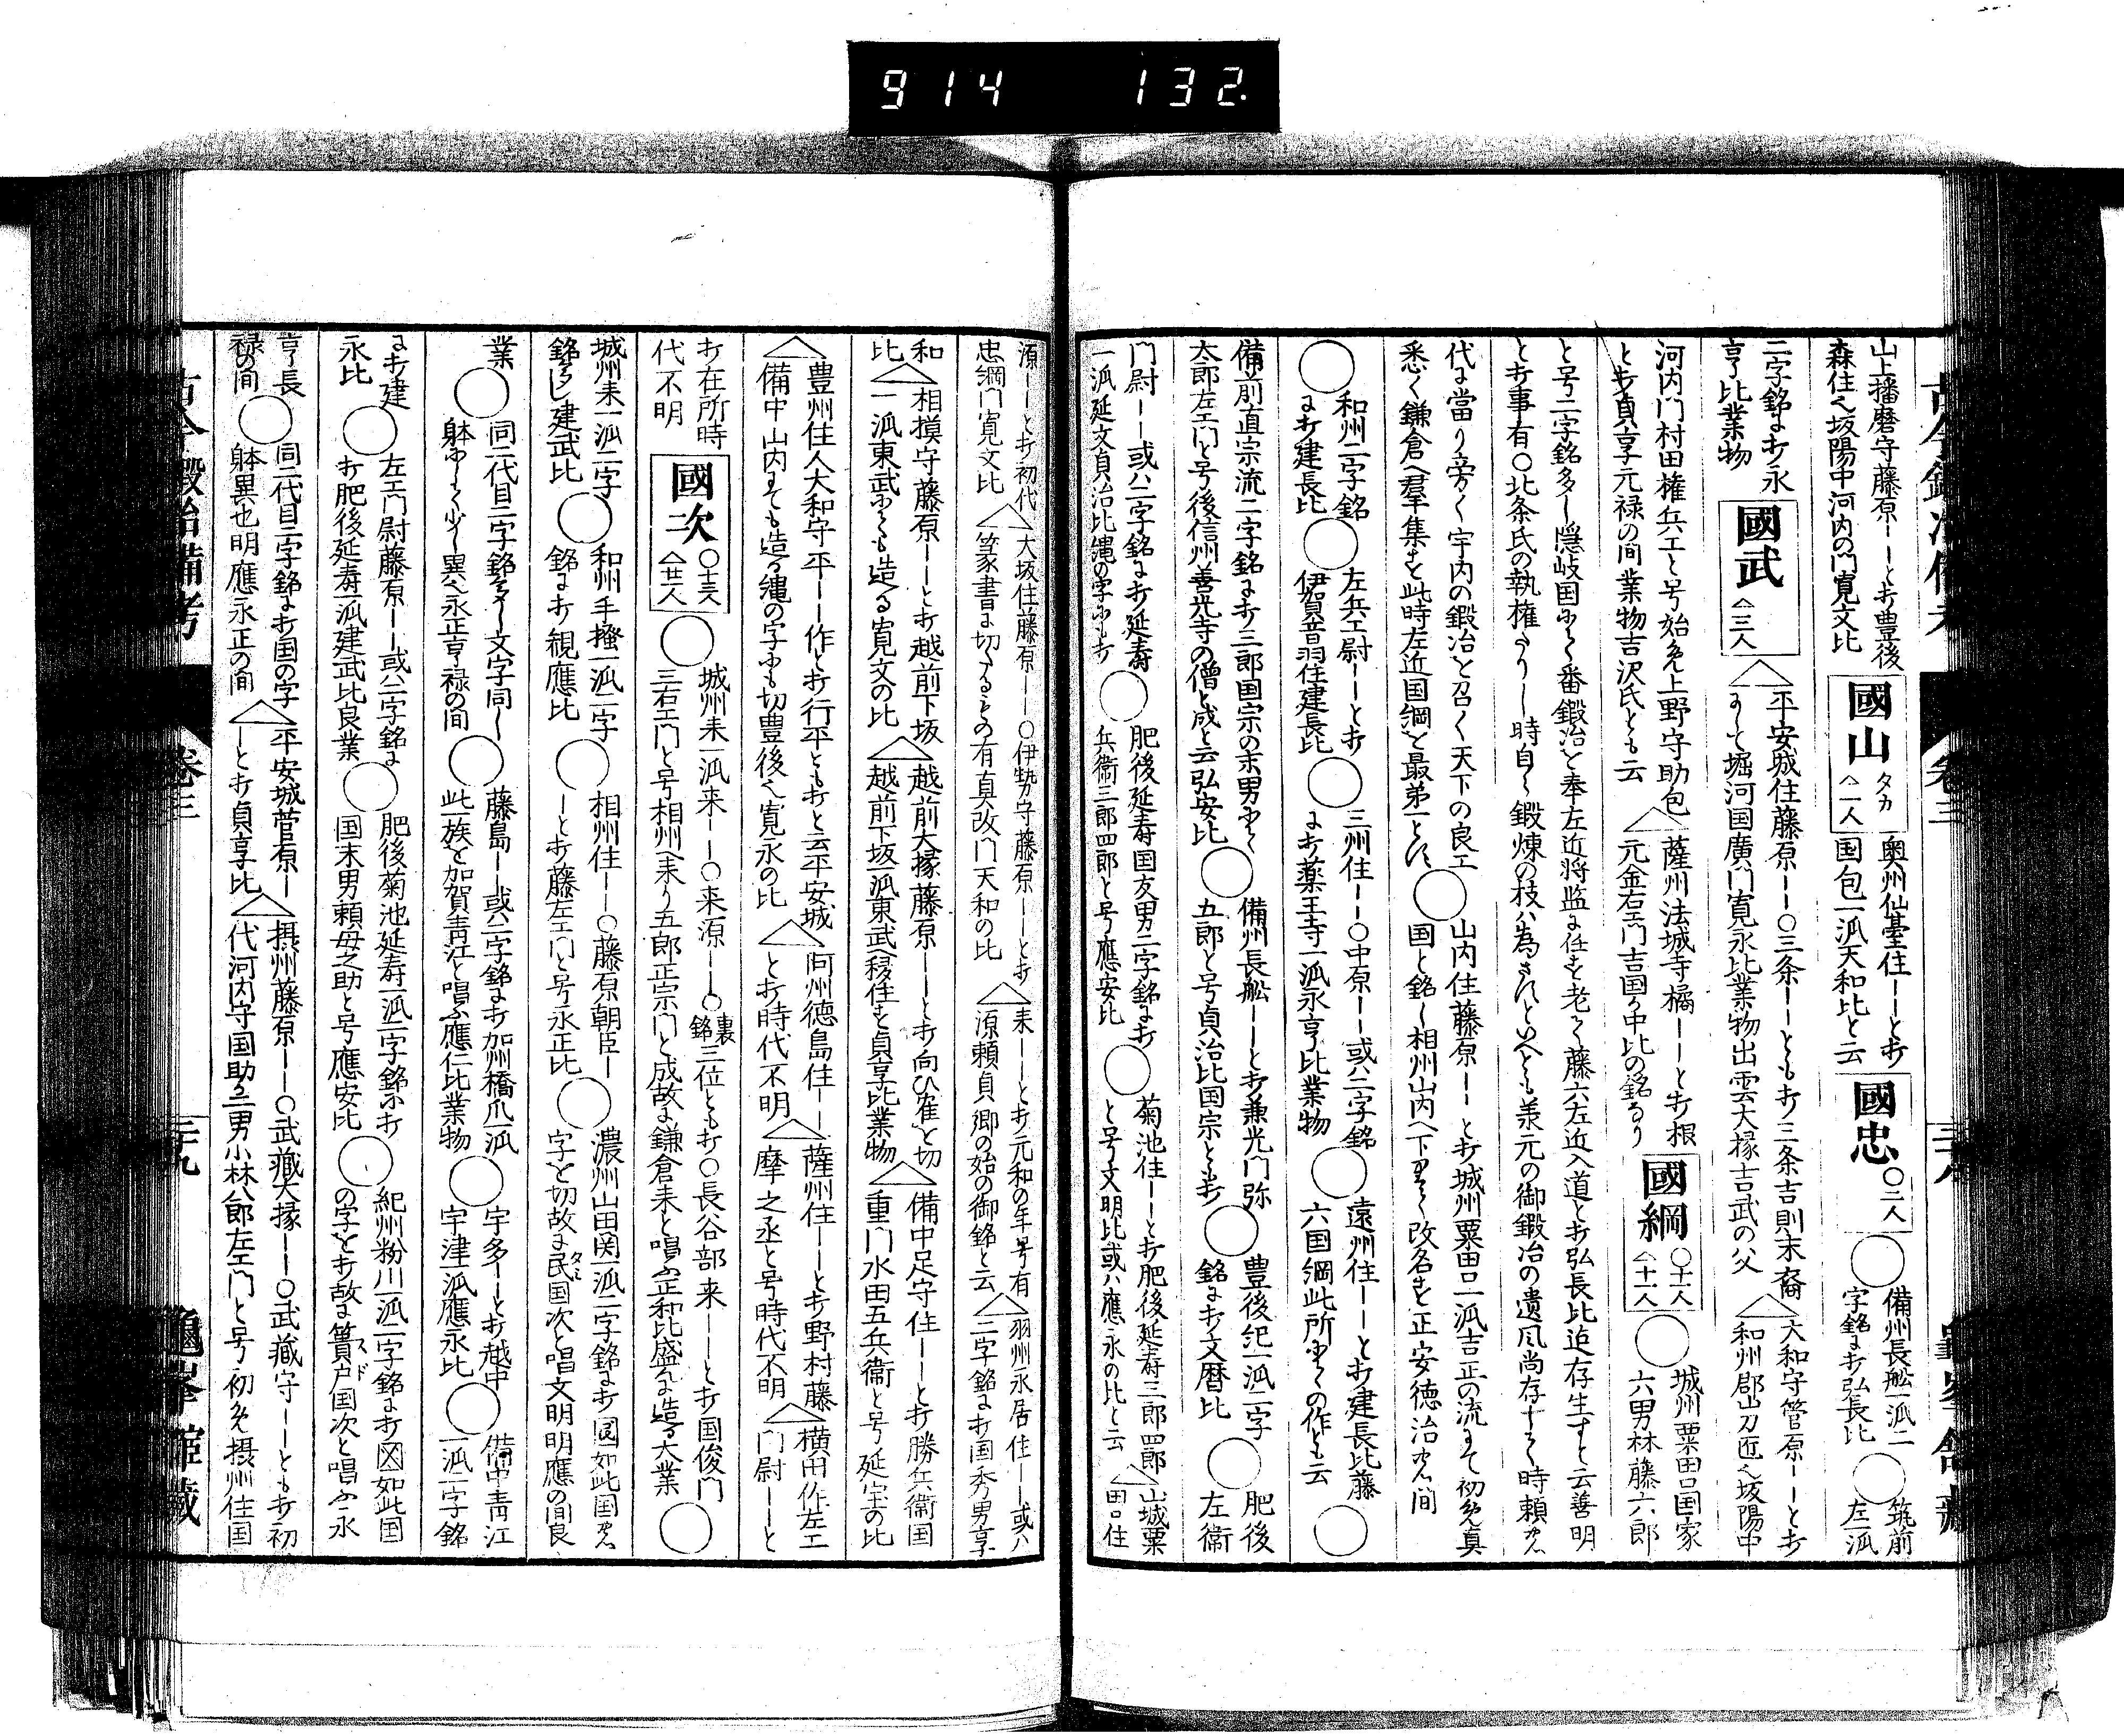 914 132.
山上播磨守藤原ーーと打豊後
森住又坂陽中河内の門寛文比
國山 タカ △一人
奥州仙臺住ーーと打
国包一派天和比と云
國忠 〇二人
◯備州長舩一派二
字銘に打弘長比
◯筑前
左一派
二字銘に打永
亨比業物
國武 △三人
△平安城住藤原ーー〇三条ーーとも打三条吉則末裔
堀河国廣門寛永比業物出雲大掾吉武の父
△大和守菅原ーーと打
和州郡山刀匠又坂陽中
河内門村田権兵エと号始め上野守助包
と打貞享元禄の間業物吉沢氏とも云
△薩州法城寺橘ーーと打根
元金右エ門吉国中比の銘なり
國綱 〇十一人 △十一人
◯城州粟田口国家
六男林藤六郎
と号二字銘多し隠岐国番鍛冶と奉左近将監に任を老て藤六左近入道と打弘長比迄存生すと云善明
と打事有〇北条氏の執権より時自鍛煉の枝ハ為といへとも兼元の御鍛冶の遺風尚存す時頼
代に當り旁く宇内の鍛冶と召く天下の良工
悉く鎌倉へ羣集を此時左近国綱と最第一と
◯山内住藤原ーーと打城州粟田口一派吉正の流にて初め真
国と銘し相州山内へ下り改名を正安徳治間
◯和州二字銘
に打建長比
◯左兵エ尉ーーと打
伊賀音羽住建長比
◯三州住ーー〇中原ーー或ハ二字銘
に打薬王寺一派永亨比業物
◯遠州住ーーと打建長比藤
六国綱此所の作とも云
◯
備前直宗流二字銘に打三郎国宗の末男
太郎左エ門と号後信州善光寺の僧と成と云弘安比
◯備州長舩ーーと打兼光門弥
五郎と号貞治比国宗とも打
◯豊後紀一派二字
銘に打文暦比
◯肥後
左衛
門尉ーー或ハ二字銘に打延寿
一派延文貞治比縄の字にも打
◯肥後延寿国友男二字銘に打
兵衛三郎四郎と号應安比
◯菊池住ーーと打肥後延寿三郎四郎
と号文明比或ハ應永の比と云
△山城粟
田口住
源ーーと打初代
忠綱門寛文比
△大坂住藤原ーー〇伊勢守藤原ーーと打
篆書に切たるもの有真改門天和の比
△来ーーと打元和の年号有
源頼貞郷の始の御銘と云
△羽州永居住ーー或ハ
二字銘に打国秀男享
和比
△相摸守藤原ーーと打越前下坂
一派東武にても造る寛文の比
△越前大掾藤原ーーと打向ひ雀と切
越前下坂一派東武へ移住と貞享比業物
△備中足守住ーーと打勝兵衛国
重門水田五兵衛と号延宝の比
△豊州住人大和守平ーー作と打行平とも打と云平安城
備中山内にても造る縄の字にも切豊後へ寛永の比
△阿州徳島住ーー
と打時代不明
△薩州住ーーと打野村藤
摩之丞と号時代不明
△横田作左エ
門尉ーーと
打在所時
代不明
國次 〇十三人 △廿一人
◯城州来一派来ーー〇来源ーー〇裏銘三位とも打〇長谷部来ーーと打国俊門
三右エ門と号相州へ来り五郎正宗門と成故に鎌倉来と唱ふ正和比盛に造る大業
◯
城州来一派二字
銘多し建武比
◯和州手掻一派二字
銘に打観應比
◯相州住ーー〇藤原朝臣ー
ーと打藤左エ門と号永正比
◯濃州山田関一派二字銘に打囻如此国
字と切故に民国次と唱文明明應の間良
業
◯同二代目二字銘多し文字同し
躰少し異へ永正亨禄の間
◯藤島ーー或ハ二字銘に打加州橋爪一派
此一族と加賀青江と唱ふ應仁比業物
◯宇多ーーと打越中
宇津一派應永比
◯備中青江
一派二字銘
に打建
永比
◯左エ門尉藤原ーー或ハ二字銘に
打肥後延寿一派建武比良業
◯肥後菊池延寿一派二字銘に打
国末男頼母之助と号應安比
◯紀州粉川一派二字銘に打図如此国
の字と打故に簀戸国次と唱ふ永
亨長
禄の間
◯同二代目二字銘に打国の字
躰異也明應永正の間
△平安城菅原ー
ーと打貞享比
△摂州藤原ーー〇武蔵大掾ーー〇武蔵守ーーとも打初
代河内守国助三男小林八郎左エ門と号初め摂州住国
古今鍛冶備考
巻三
三十九
龜峯館藏